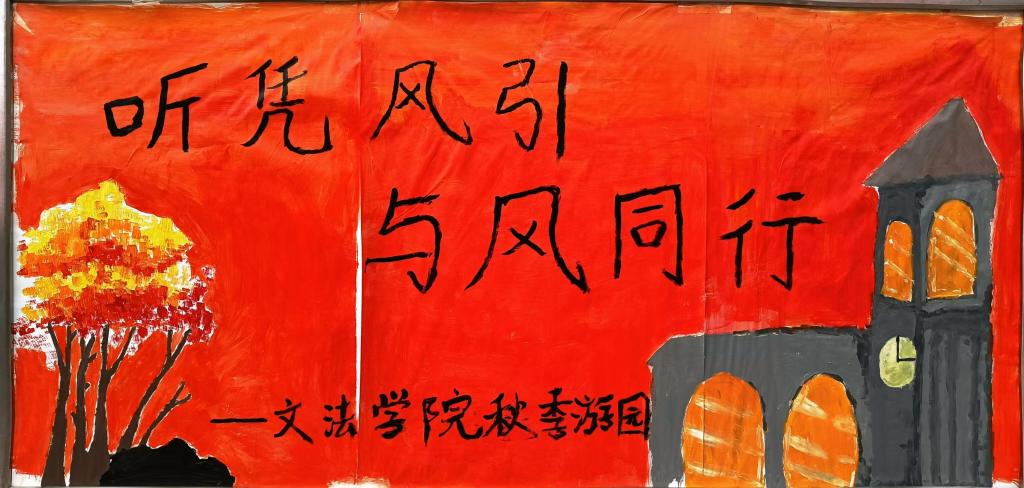 听凭风引
与风同行
—文法学院秋季游园